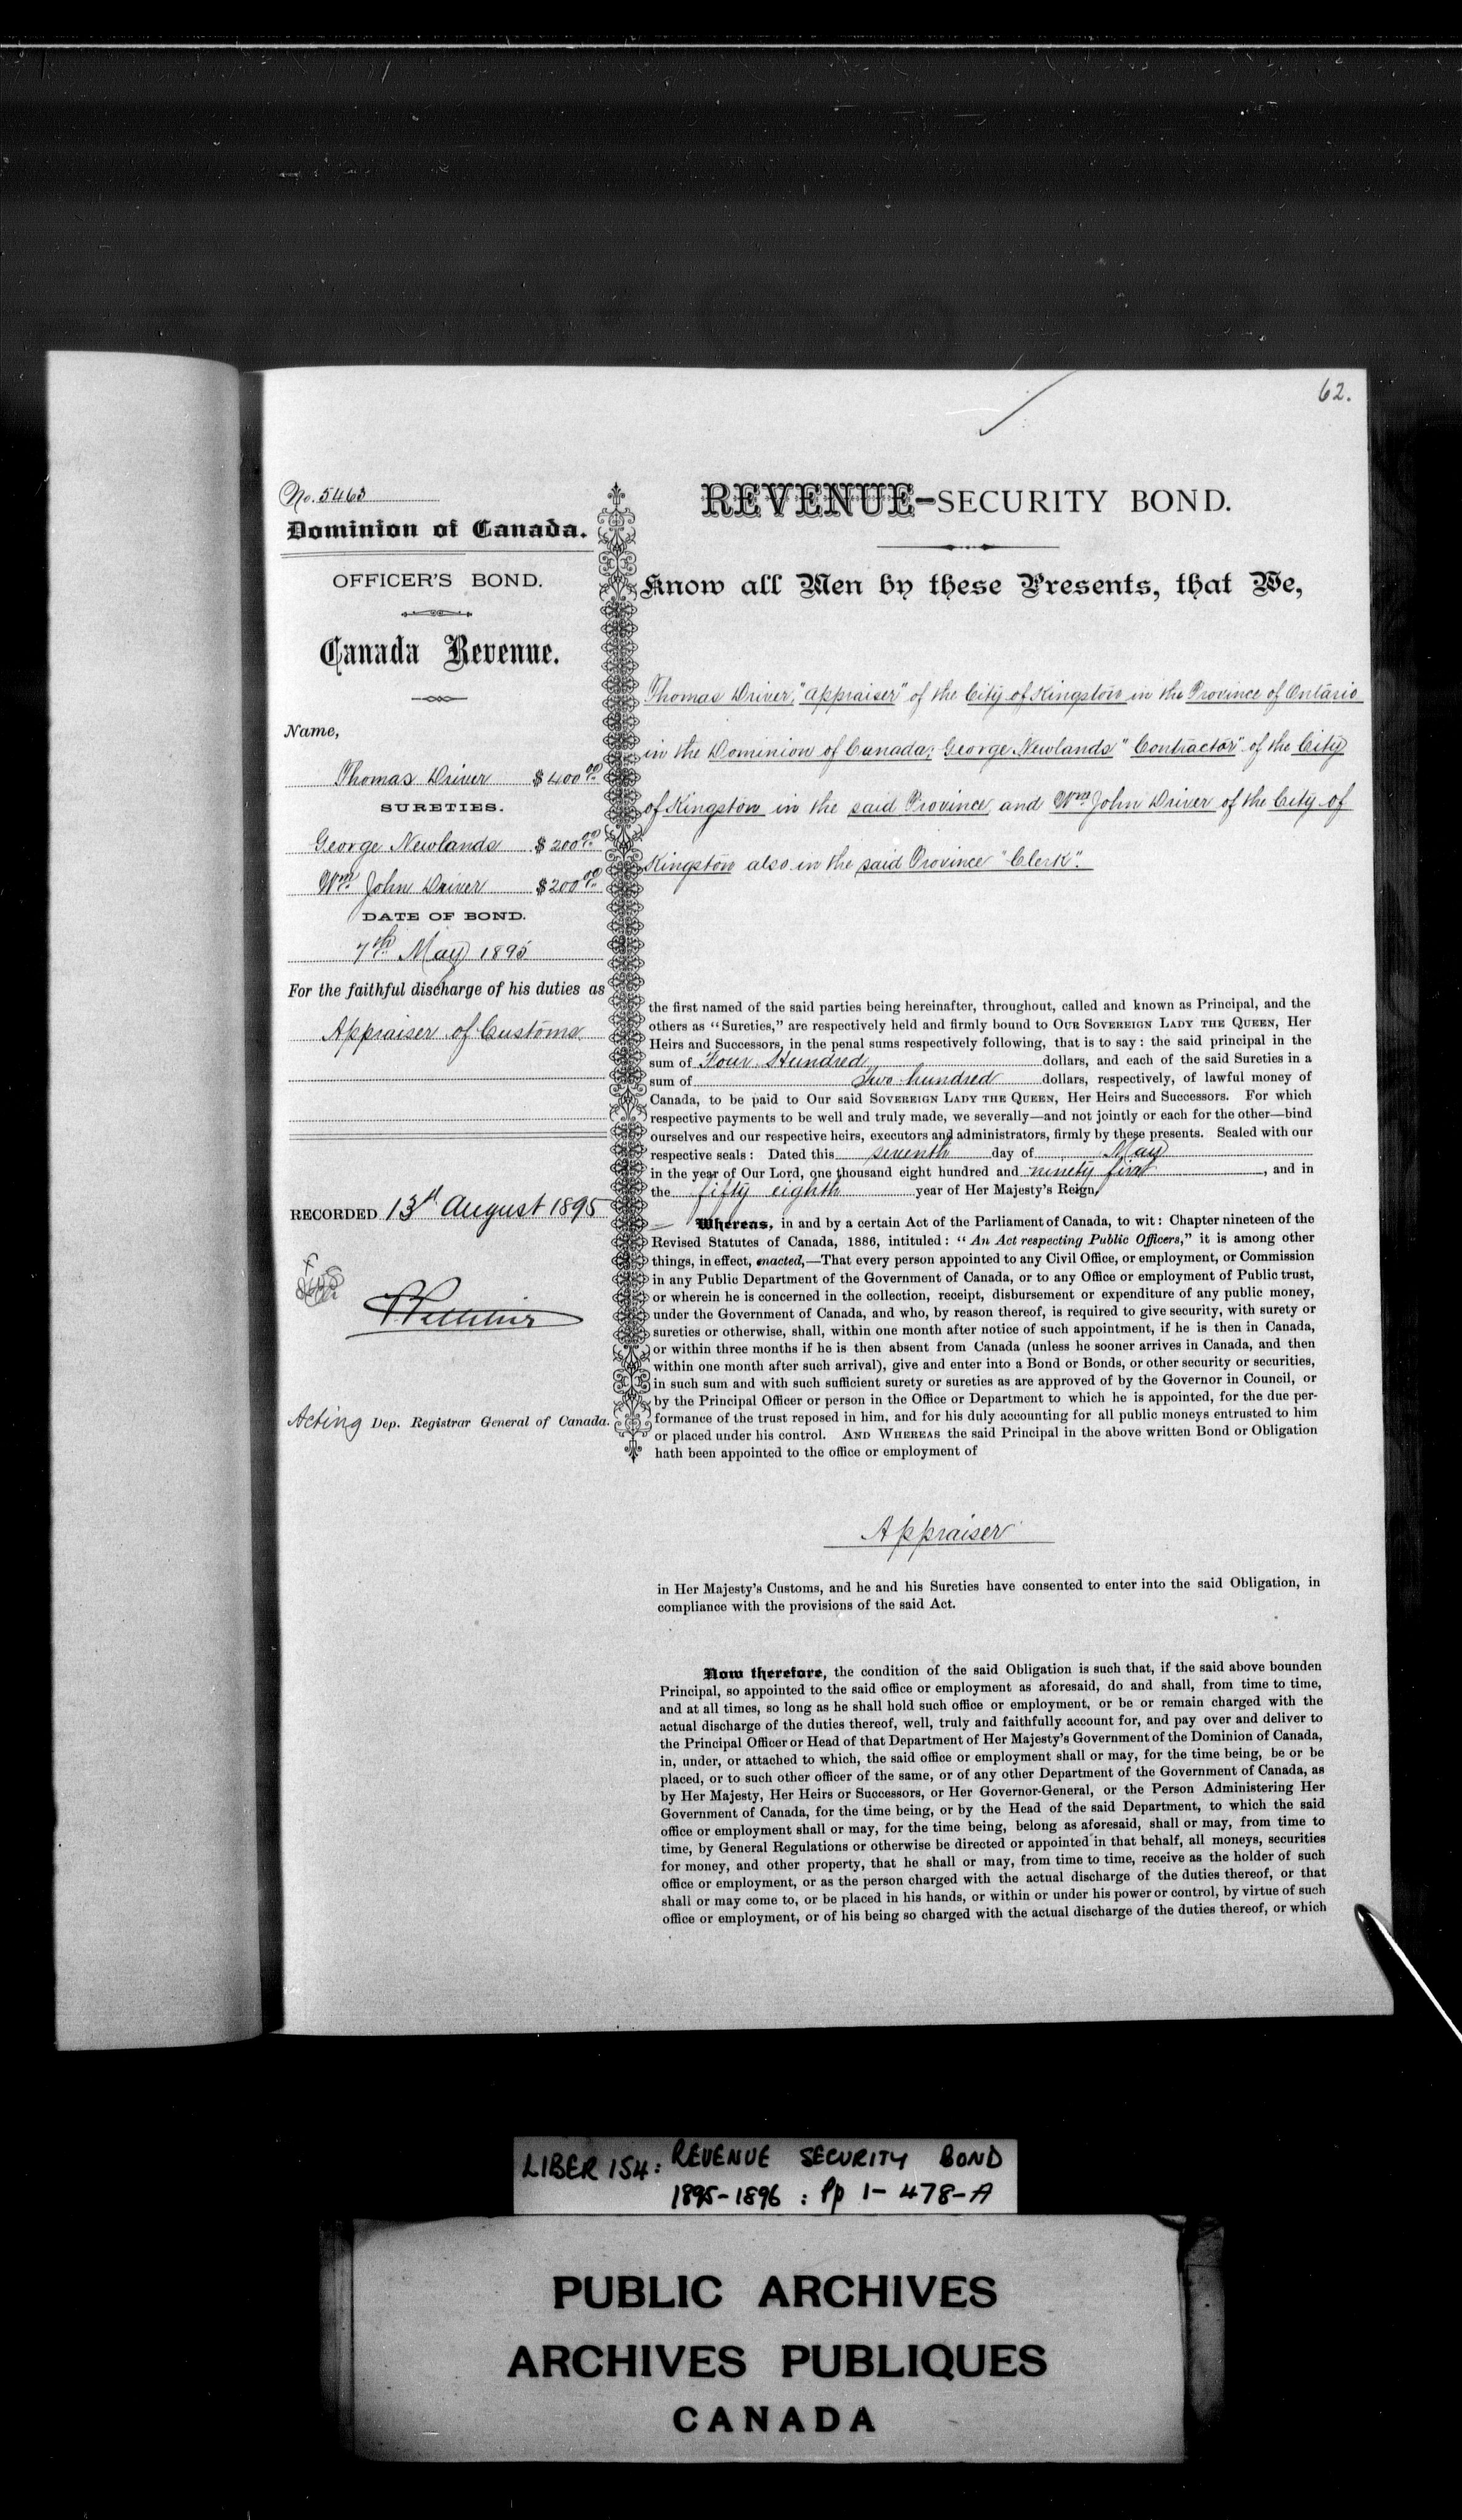 62.
No. 5463
Dominion of Canada.
OFFICER'S BOND.
Canada Revenue.
Name,
Thomas Driver $400.00
SURETIES.
George Newlands $200.00
Wm. John Driver $200.00
DATE OF BOND.
7th May 1895
For the faithful discharge of his duties as
Appraiser of Customs
RECORDED 13th August 1895
Acting Dep. Registrar General of Canada.
REVENUE-SECURITY BOND.
Know all Men by these Presents, that We,
Thomas Driver, "Appraiser" of the City of Kingston in the Province of Ontario
in the Dominion of Canada; George Newlands "Contractor" of the City
of Kingston in the said Province and Wm. John Driver of the City of
Kingston also in the said Province "Clerk".
the first named of the said parties being hereinafter, throughout, called and known as Principal, and the
others as "Sureties," are respectively held and firmly bound to OUR SOVEREIGN LADY THE QUEEN, Her
Heirs and Successors, in the penal sums respectively following, that is to say: the said principal in the
sum of Four Hundred dollars, and each of the said Sureties in a
sum of Two hundred dollars, respectively, of lawful money of
Canada, to be paid to Our said SOVEREIGN LADY THE QUEEN, Her Heirs and Successors. For which
respective payments to be well and truly made, we severally—and not jointly or each for the other—bind
ourselves and our respective heirs, executors and administrators, firmly by these presents. Sealed with our
respective seals: Dated this seventh day of May
in the year of Our Lord, one thousand eight hundred and ninety five, and in
the fifty eighth year of Her Majesty's Reign,
Whereas, in and by a certain Act of the Parliament of Canada, to wit: Chapter nineteen of the
Revised Statutes of Canada, 1886, intituled: "An Act respecting Public Officers," it is among other
things, in effect, enacted,—That every person appointed to any Civil Office, or employment, or Commission
in any Public Department of the Government of Canada, or to any Office or employment of Public trust,
or wherein he is concerned in the collection, receipt, disbursement or expenditure of any public money,
under the Government of Canada, and who, by reason thereof, is required to give security, with surety or
sureties or otherwise, shall, within one month after notice of such appointment, if he is then in Canada,
or within three months if he is then absent from Canada (unless he sooner arrives in Canada, and then
within one month after such arrival), give and enter into a Bond or Bonds, or other security or securities,
in such sum and with such sufficient surety or sureties as are approved of by the Governor in Council, or
by the Principal Officer or person in the Office or Department to which he is appointed, for the due per-
formance of the trust reposed in him, and for his duly accounting for all public moneys entrusted to him
or placed under his control. AND WHEREAS the said Principal in the above written Bond or Obligation
hath been appointed to the office or employment of
Appraiser
in Her Majesty's Customs, and he and his Sureties have consented to enter into the said Obligation, in
compliance with the provisions of the said Act.
Now therefore, the condition of the said Obligation is such that, if the said above bounden
Principal, so appointed to the said office or employment as aforesaid, do and shall, from time to time,
and at all times, so long as he shall hold such office or employment, or be or remain charged with the
actual discharge of the duties thereof, well, truly and faithfully account for, and pay over and deliver to
the Principal Officer or Head of that Department of Her Majesty's Government of the Dominion of Canada,
in, under, or attached to which, the said office or employment shall or may, for the time being, be or be
placed, or to such other officer of the same, or of any other Department of the Government of Canada, as
by Her Majesty, Her Heirs or Successors, or Her Governor-General, or the Person Administering Her
Government of Canada, for the time being, or by the Head of the said Department, to which the said
office or employment shall or may, for the time being, belong as aforesaid, shall or may, from time to
time, by General Regulations or otherwise be directed or appointed in that behalf, all moneys, securities
for money, and other property, that he shall or may, from time to time, receive as the holder of such
office or employment, or as the person charged with the actual discharge of the duties thereof, or that
shall or may come to, or be placed in his hands, or within or under his power or control, by virtue of such
office or employment, or of his being so charged with the actual discharge of the duties thereof, or which
LIBER 154: REVENUE SECURITY BOND
1895-1896 : Pp 1-478-A
PUBLIC ARCHIVES
ARCHIVES PUBLIQUES
CANADA